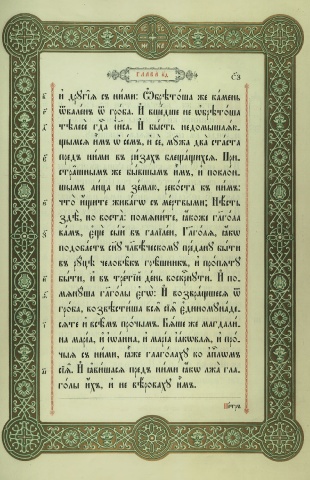 ГЛАВА к҃д
с҃з
и҆ дрꙋгі̑ѧ съ ни́ми: Ѡ҆брѣто́ша же ка́мень
ѿвале́нъ ѿ гро́ба. И҆ вше́дше не ѡ҆брѣто́ша
тѣлесѐ гдⷭ҇а і҆и҃са. И҆ бы́сть недомышлѧ́ю-
щымсѧ и҆̀мъ ѡ҆ се́мъ, и҆ сѐ, мꙋ̑жа два̀ ста́ста
пред̾ ни́ми въ ри́захъ блеща́щихсѧ. При-
стра̑шнымъ же бы́вшымъ и҆̀мъ, и҆ поклѡ́н-
шымъ ли́ца на зе́млю, реко́ста къ ни̑мъ:
что̀ и҆́щете жива́го съ ме́ртвыми; Нѣ́сть
здѣ̀, но воста̀: помѧни́те, ꙗ҆́коже глаго́ла
ва́мъ, є҆щѐ сы́й въ галїле́и, Глаго́лѧ, ꙗ҆́кѡ
подоба́етъ сн҃ꙋ чл҃вѣ́ческомꙋ пре́данꙋ бы́ти
въ рꙋ́цѣ человѣ̑къ грѣ́шникъ, и҆ пропѧ́тꙋ
бы́ти, и҆ въ тре́тїй де́нь воскре́снꙋти. И҆ по-
мѧнꙋ́ша глаго́лы є҆гѡ̀: И҆ возвра́щшесѧ ѿ
гро́ба, возвѣсти́ша всѧ̑ сїѧ̑ є҆диномꙋна́де-
сѧте и҆ всѣ̑мъ про́чымъ. Бѧ́ше же магдали́-
на марі́а, и҆ і҆ѡа́нна, и҆ марі́а і҆а́кѡвлѧ, и҆ прѡ́-
чыѧ съ ни́ми, ꙗ҆̀же глаго́лахꙋ ко а҆пⷭ҇лѡмъ
сїѧ̑. И҆ ꙗ҆ви́шасѧ пред̾ ни́ми ꙗ҆́кѡ лжа̀ гла-
го́лы и҆́хъ, и҆ не вѣ́ровахꙋ и҆̀мъ.
Пе́тръ